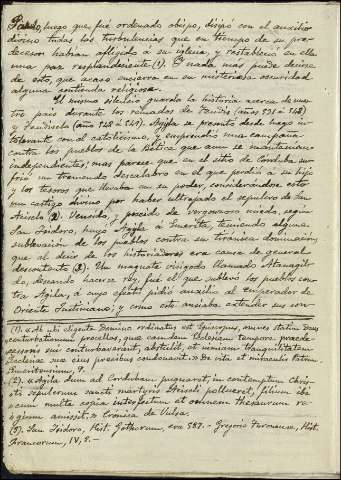 Paulo, luego que fué ordenado obispo, disipó con el auxilio
divino todas las turbulencias que en tiempo de su pre-
decesor habían afligido á su iglesia, y restableció en ella
una paz resplandeciente (1). Y nada más puede decirse
de esto, que acaso encierra en su misteriosa oscuridad
alguna contienda religiosa.
El mismo silencio guarda la historia acerca de nues-
tro país durante los reinados de Teudis (años 531 á 548)
y Teudisela (años 548 á 549). Agila se mostró desde luego in-
tolerante con el catolicismo, y emprendió una campaña
contra los pueblos de la Bética que aun se mantenían
independientes; mas parece que en el sitio de Córdoba su-
frió un tremendo descalabro en el que perdió á su hijo
y los tesoros que llevaba en su poder, considerándose esto
un castigo divino por haber ultrajado el sepulcro de San
Acisclo (2). Vencido, y poseido de vergonzoso miedo, según
San Isidoro, huyó Agila á Emerita, temiendo alguna
sublevación de los pueblos contra su tiránica dominación,
que al decir de los historiadores era causa de general
descontento (3). Un magnate visigodo llamado Atanagil-
do, deseando hacerse rey, fué el que sublevó los pueblos con-
tra Agila, á cuyo efecto pidió auxilio al emperador de
Oriente Justiniano; y como éste ansiaba extender sus con-
(1). «At ubi eligente Domino ordinatus est Episcopus, omnes statim Deus
conturbationum procellas, quae eamdem Ecclesiam tempore praede-
cessoris sui conturbaverant, abstulit, et nimiam tranquillitatem
Ecclesiae suae ejus precibus condonavit.» De vita et miraculis Patrum
Emeritensium, 9.
(2). «Agila dum ad Cordubam pugnaret, in contemptum Chris-
ti sepulcrum sancti martyris Aciscli pollueret, filium ibi-
decum multa copia interfectum et omnem thesaurum re-
gium amissit.» Crónica de Vulsa.
(3). San Isidoro, Hist. Gothorum, era 587. - Gregorio Turonense, Hist.
Francorum, IV, 8. -